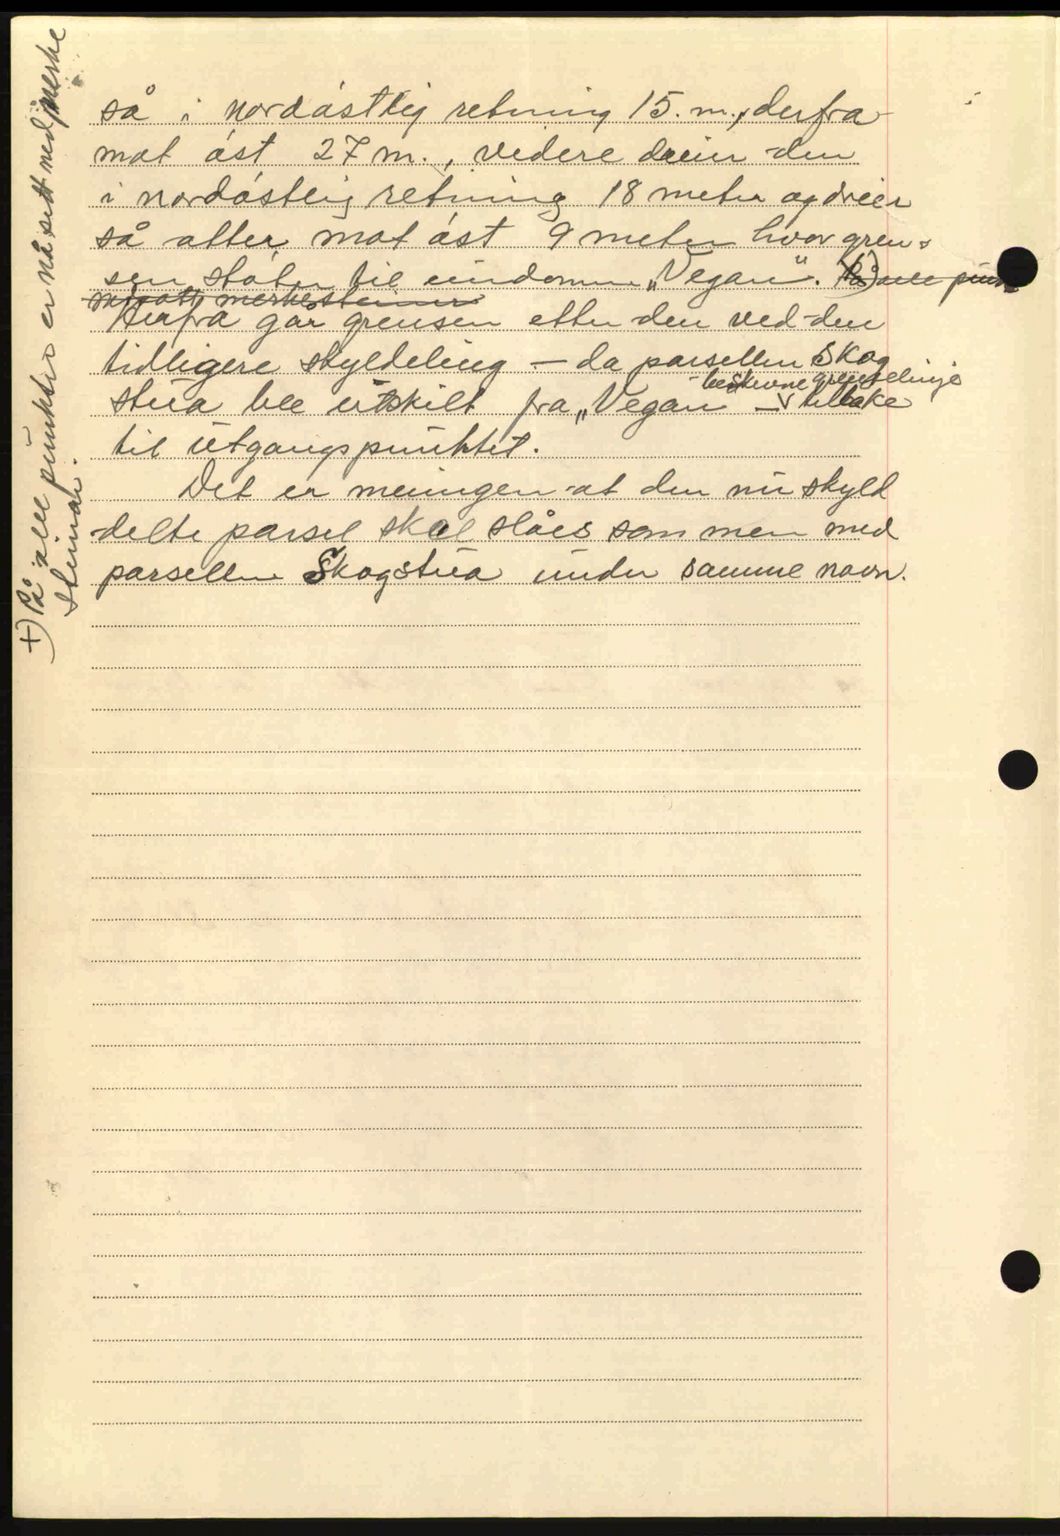 så i nordøstlig retning 15. m., derfra
mot øst 27 m., videre dreier den
i nordøstlig retning 18 meter og dreier
så atter mot øst 9 meter hvor gren-
sen støter til eiendommen „Vegan". +) På alle punk
merkestener
Herfra går grensen etter den ved den
tidligere skyldeling – da parsellen Skog
beskrevne grenselinje
stua ble utskilt fra „Vegan – v tilbake
til utgangspunktet.
Det er meningen at den nu skyld
delte parsel skal slåes sammen med
parsellen Skogstua under samme navn.
+) På alle punkter er nå sett ned merke
steiner.